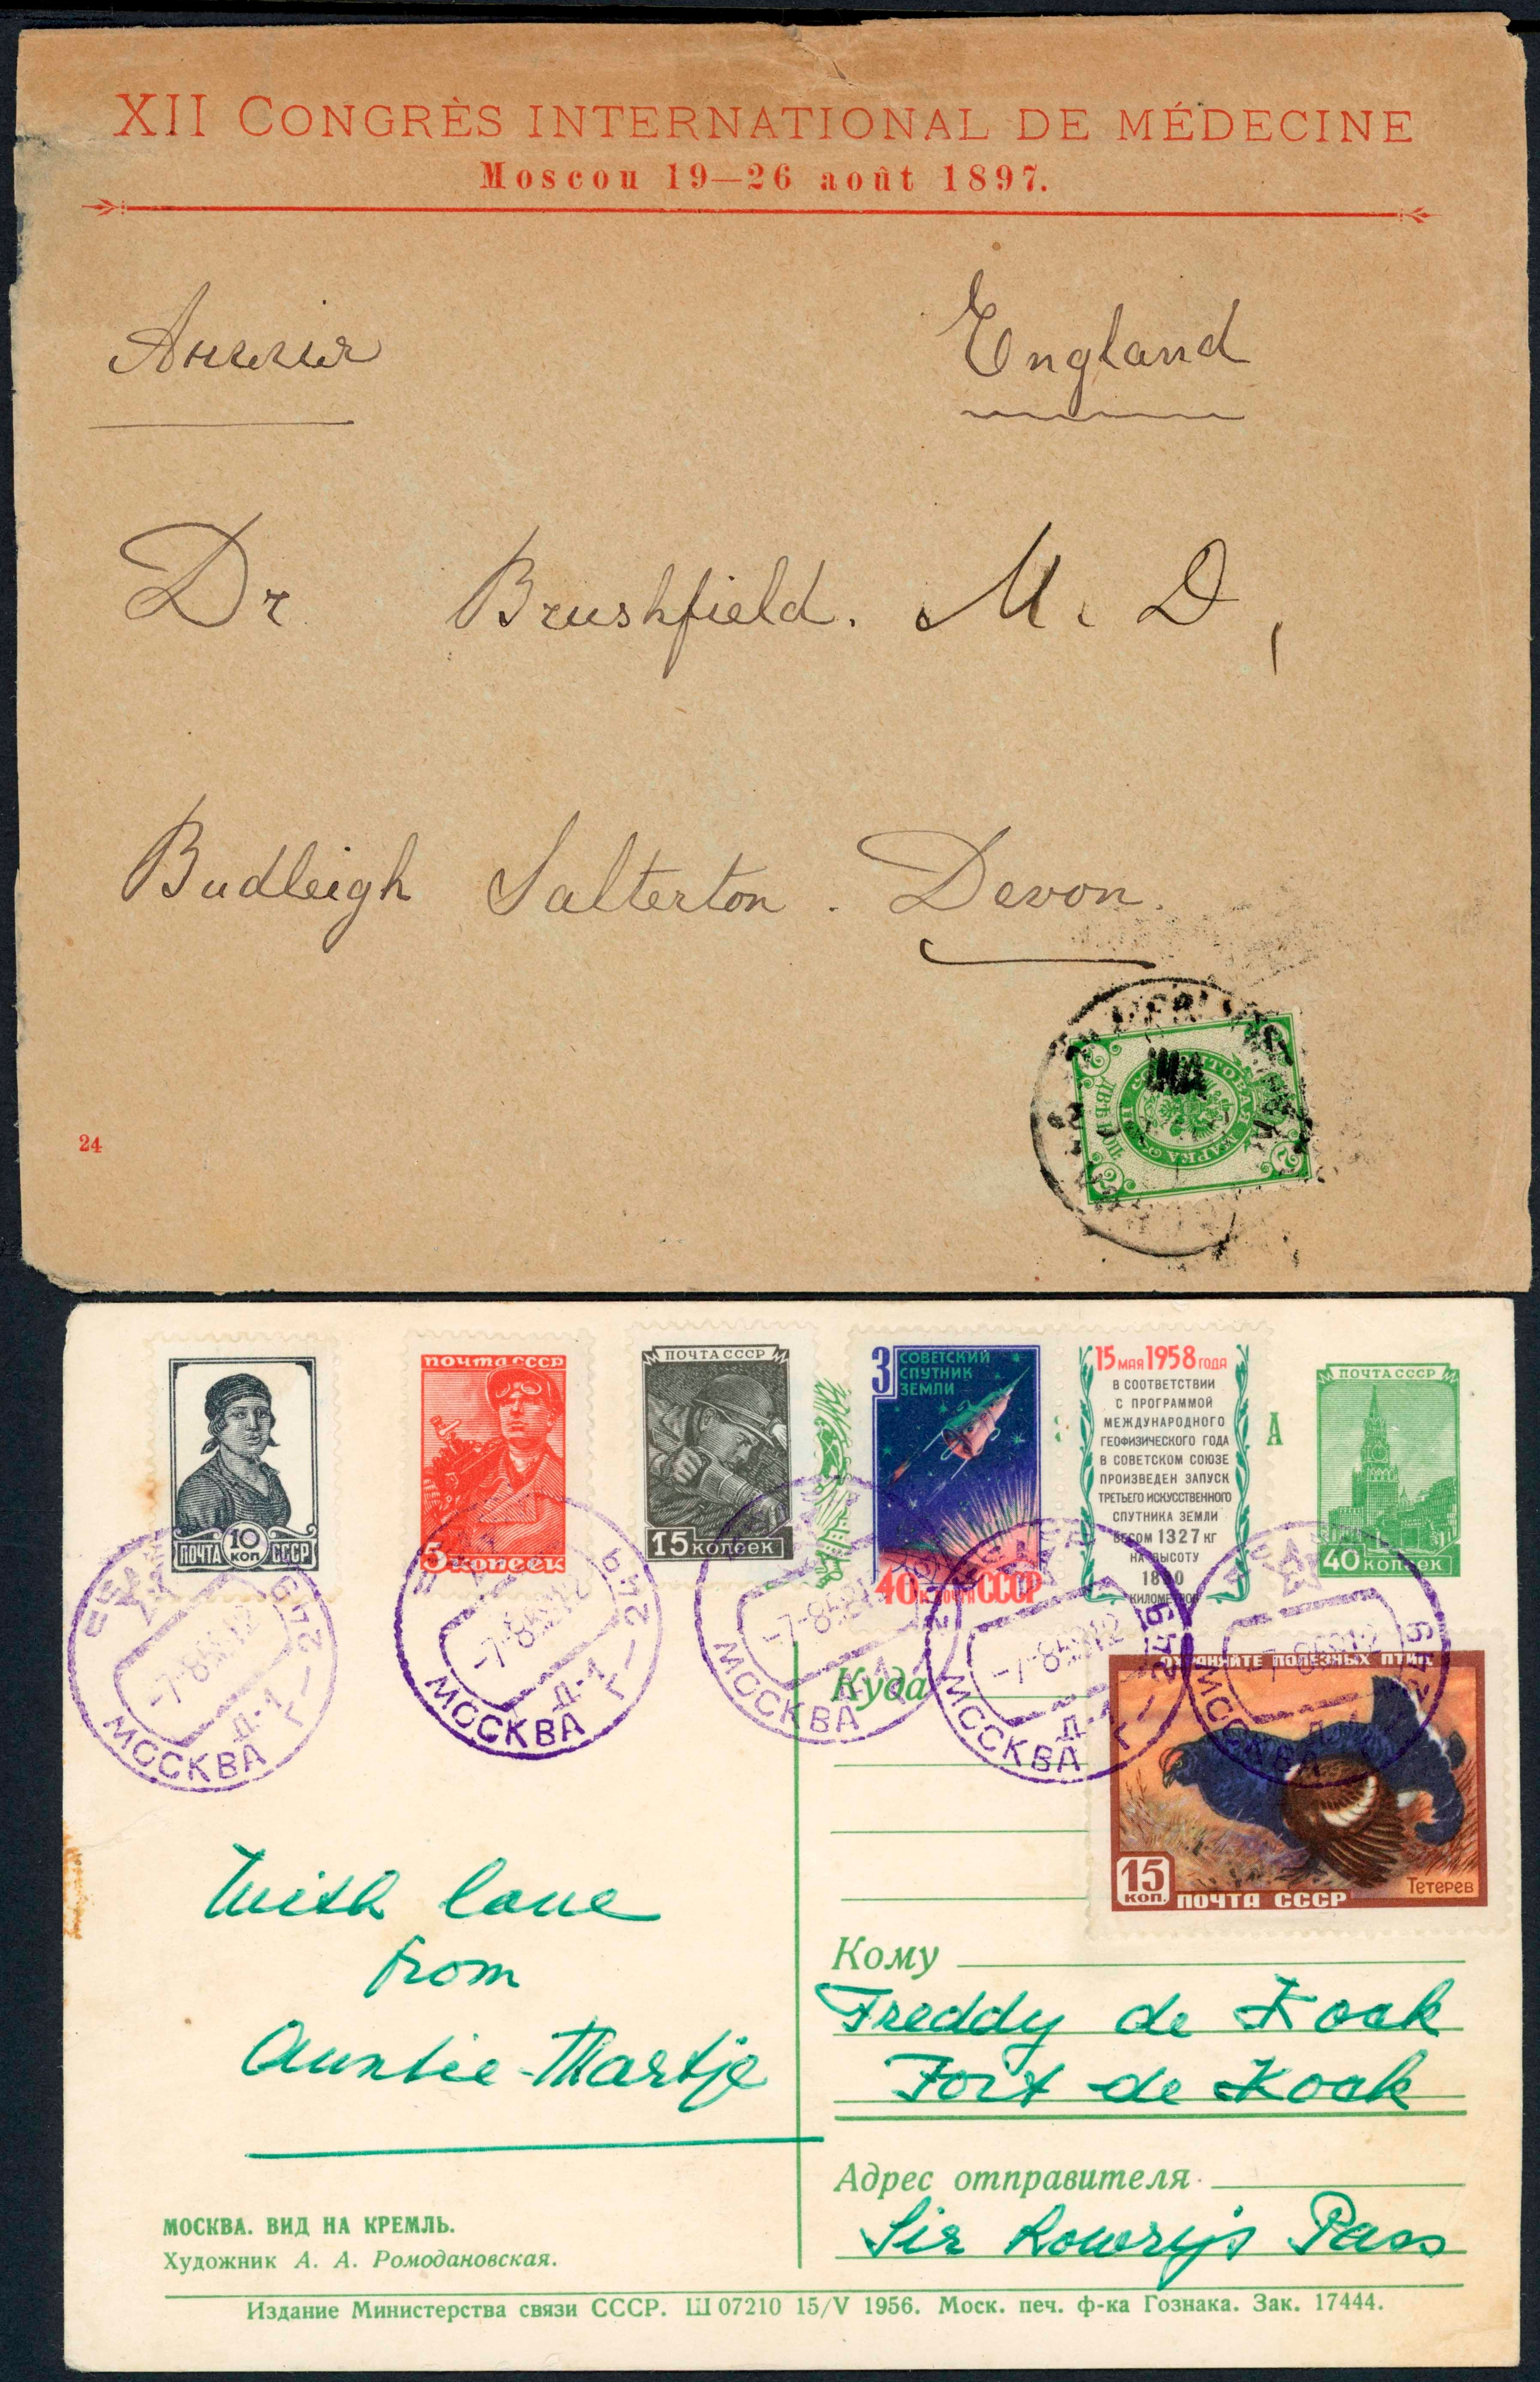 XII CONGRÈS INTERNATIONAL DE MÉDECINE
Moscou 19—26 août 1897.
Англія England
Dr Brushfield. M. D,
Budleigh Salterton. Devon.
24
ПОЧТОВАЯ МАРКА
2
2
2
2
10 КОП
ПОЧТА СССР
ПОЧТА СССР
5 КОПЕЕК
ПОЧТА СССР
15 КОПЕЕК
3 СОВЕТСКИЙ
СПУТНИК
ЗЕМЛИ
40 К. ПОЧТА СССР
15 МАЯ 1958 ГОДА
В СООТВЕТСТВИИ
С ПРОГРАММОЙ
МЕЖДУНАРОДНОГО
ГЕОФИЗИЧЕСКОГО ГОДА
В СОВЕТСКОМ СОЮЗЕ
ПРОИЗВЕДЕН ЗАПУСК
ТРЕТЬЕГО ИСКУССТВЕННОГО
СПУТНИКА ЗЕМЛИ
ВЕСОМ 1327 КГ
НА ВЫСОТУ
КИЛОМЕТРОВ
А
ПОЧТА СССР
40 КОПЕЕК
МОСКВА Д-1
МОСКВА Д-1
МОСКВА Д-1
МОСКВА Д-1
МОСКВА
Куда
ОХРАНЯЙТЕ ПОЛЕЗНЫХ ПТИЦ
15 КОП. ПОЧТА СССР
Тетерев
With love
from
Auntie Martje
Кому
Freddy de Kock
Fort de Kock
Адрес отправителя
Sir Lowry's Pass
МОСКВА. ВИД НА КРЕМЛЬ.
Художник А. А. Ромодановская.
Издание Министерства связи СССР. Ш 07210 15/V 1956. Моск. печ. ф-ка Гознака. Зак. 17444.